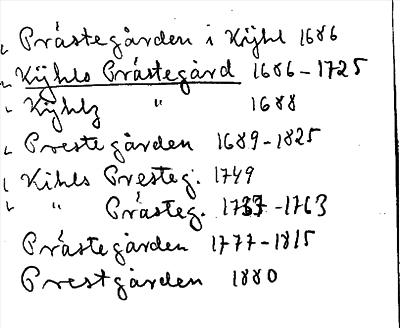 Prästegården i Kijhl 1686
Kijhls Prästegård 1686-1725
Kijhlz " 1688
Prestegården 1689-1825
Kihls Presteg. 1749
" Prästeg. -1763
Prästegården 1777-1815
Prestgården 1880